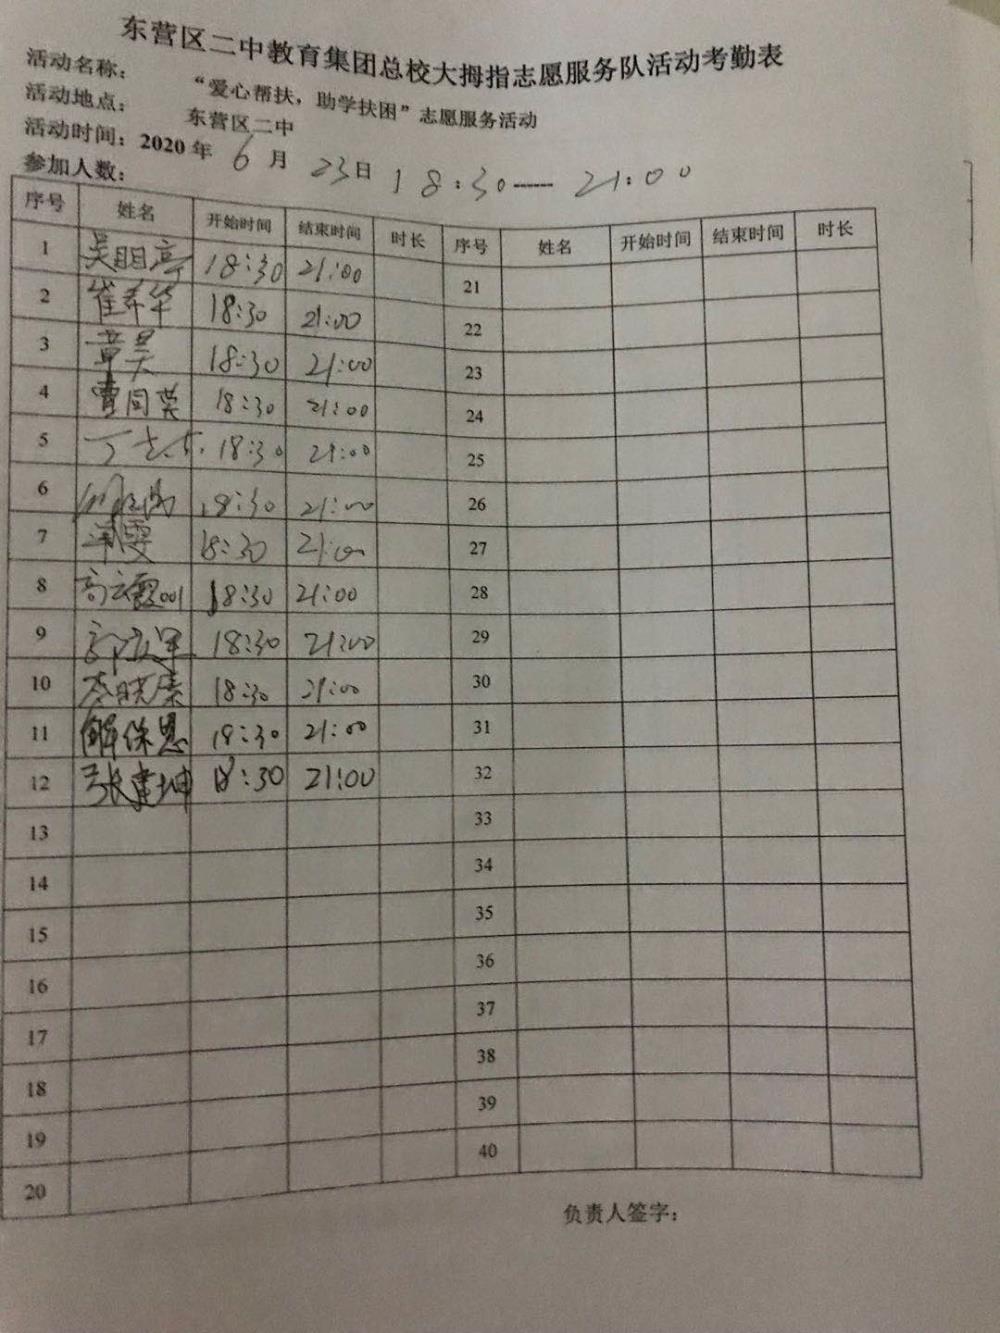 东营区二中教育集团总校大拇指志愿服务队活动考勤表
活动名称： “爱心帮扶，助学扶困”志愿服务活动
活动地点： 东营区二中
活动时间：2020年 6月 23日 18:30------ 21:00
参加人数：
序号 姓名 开始时间 结束时间 时长 序号 姓名 开始时间 结束时间 时长
1 吴明亮 18:30 21:00 21
2 崔秀华 18:30 21:00 22
3 章昊 18:30 21:00 23
4 曹同英 18:30 21:00 24
5 丁 18:30 21:00 25
6 18:30 21:00 26
7 雯 18:30 21:00 27
8 高云霞001 18:30 21:00 28
9 军 18:30 21:00 29
10 李晓康 18:30 21:00 30
11 解保恩 18:30 21:00 31
12 张建坤 18:30 21:00 32
13 33
14 34
15 35
16 36
17 37
18 38
19 39
20 40
负责人签字：